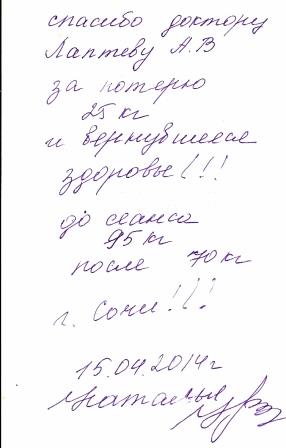 спасибо доктору
Лаптеву А.В
за потерю
25 кг
и вернувшееся
здоровье!!!
до сеанса
95 кг
после 70 кг
г. Сочи!!!
15.04.2014г
Наталья